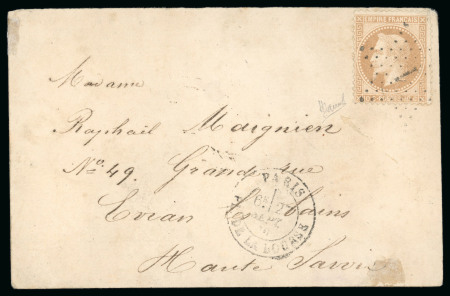 EMPIRE FRANÇAIS
1
Madame
Raphaël Maignien
No. 49. Grande rue
Evian les bains
Haute Savoie
PARIS
PL. DE LA BOURSE